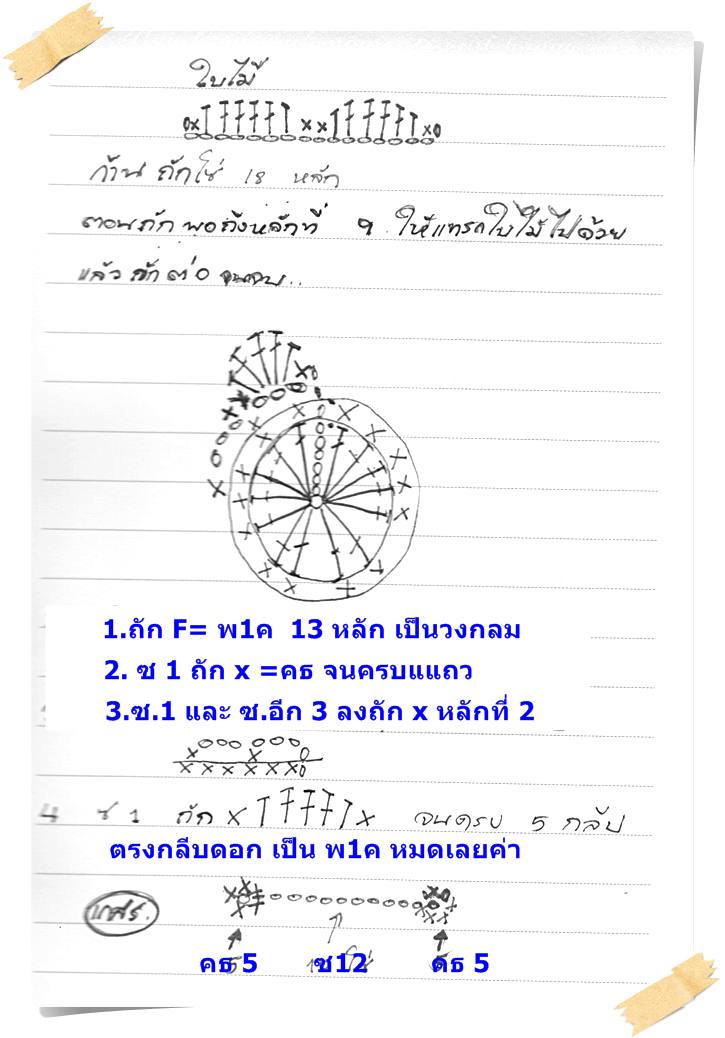 ใบไม้
ก้าน ถักโซ่ 18 หลัก
ตอนถัก พอถึงหลักที่ 9 ให้แทรกใบไม้ไปด้วย
แล้ว ถักต่อ จนจบ..
1.ถัก F= พ1ค 13 หลัก เป็นวงกลม
2. ซ 1 ถัก x =คธ จนครบแแถว
3.ซ.1 และ ซ.อีก 3 ลงถัก x หลักที่ 2
4 ซ 1 ถัก จนครบ 5 กลีบ
ตรงกลีบดอก เป็น พ1ค หมดเลยค่า
เกสร.
คธ 5 ซ12 คธ 5